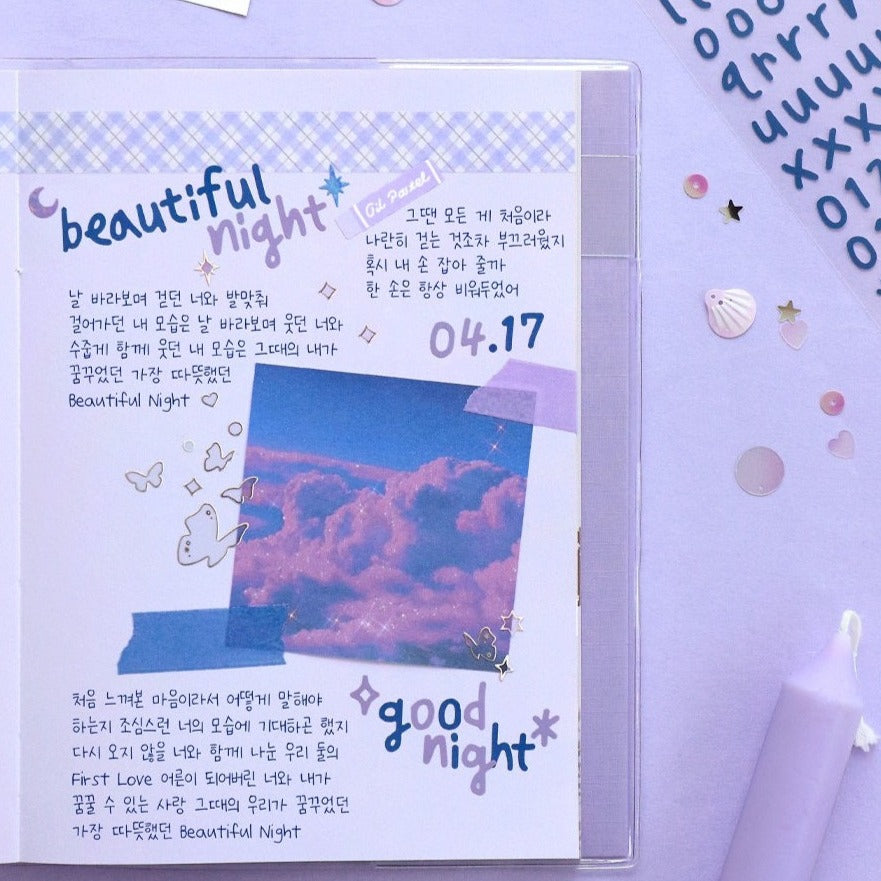 beautiful
night
Oil Pastel
그땐 모든 게 처음이라
나란히 걷는 것조차 부끄러웠지
혹시 내 손 잡아 줄까
한 손은 항상 비워두었어
날 바라보며 걷던 너와 발맞춰
걸어가던 내 모습은 날 바라보며 웃던 너와
수줍게 함께 웃던 내 모습은 그때의 내가
꿈꾸었던 가장 따뜻했던
Beautiful Night
04.17
처음 느껴본 마음이라서 어떻게 말해야
하는지 조심스런 너의 모습에 기대하곤 했지
다시 오지 않을 너와 함께 나눈 우리 둘의
First Love 어른이 되어버린 너와 내가
꿈꿀 수 있는 사랑 그때의 우리가 꿈꾸었던
가장 따뜻했던 Beautiful Night
good
night
qrrr
uuuuu
xxxx
017